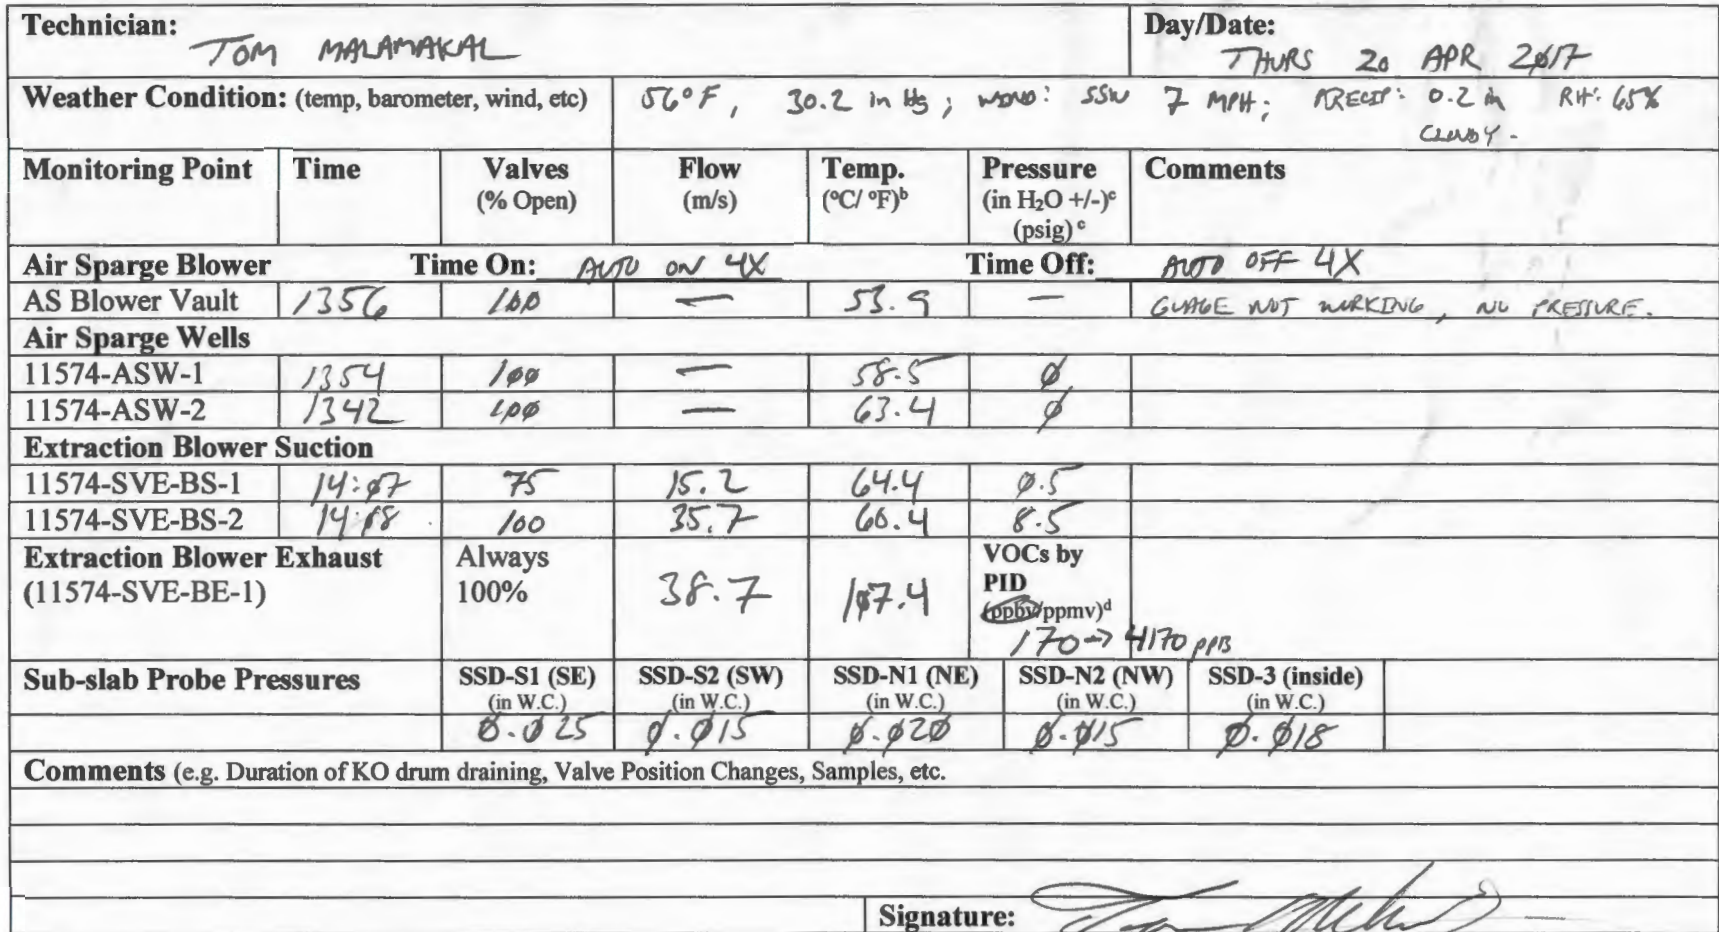 Technician: TOM MALAMAKAL Day/Date: THURS 20 APR 2017
Weather Condition: (temp, barometer, wind, etc) 56°F, 30.2 in Hg; WIND: SSW 7 MPH; PRECIP: 0.2 in RH: 65%
CLOUDY.
Monitoring Point Time Valves Flow Temp. Pressure Comments
(% Open) (m/s) (°C/ °F)b (in H₂O +/-)c
(psig) c
Air Sparge Blower Time On: AUTO ON 4X Time Off: AUTO OFF 4X
AS Blower Vault 1356 100 — 53.9 — GUAGE NOT WORKING, NO PRESSURE.
Air Sparge Wells
11574-ASW-1 1354 100 — 58.5 0
11574-ASW-2 1342 100 — 63.4 0
Extraction Blower Suction
11574-SVE-BS-1 14:07 75 15.2 64.4 0.5
11574-SVE-BS-2 14:08 100 35.7 60.4 8.5
Extraction Blower Exhaust Always VOCs by
(11574-SVE-BE-1) 100% 38.7 107.4 PID
(ppbv/ppmv)d
170 → 4170 PPB
Sub-slab Probe Pressures SSD-S1 (SE) SSD-S2 (SW) SSD-N1 (NE) SSD-N2 (NW) SSD-3 (inside)
(in W.C.) (in W.C.) (in W.C.) (in W.C.) (in W.C.)
0.025 0.015 0.020 0.015 0.018
Comments (e.g. Duration of KO drum draining, Valve Position Changes, Samples, etc.
Signature: